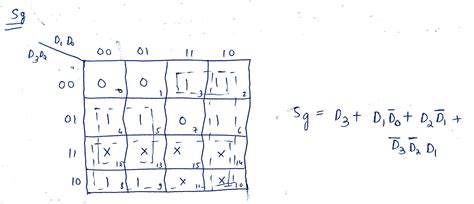 Sg
D₁D₀
D₃D₂
00 01 11 10
00 0 ₀ 0 ₁ 1 ₃ 1 ₂
01 1 ₄ 1 ₅ 0 ₇ 1 ₆
11 X ₁₂ X ₁₃ X ₁₅ X ₁₄
10 1 ₈ 1 ₉ X ₁₁ X ₁₀
Sg = D₃ + D₁D̅₀ + D₂D̅₁ +
D̅₃D̅₂D₁